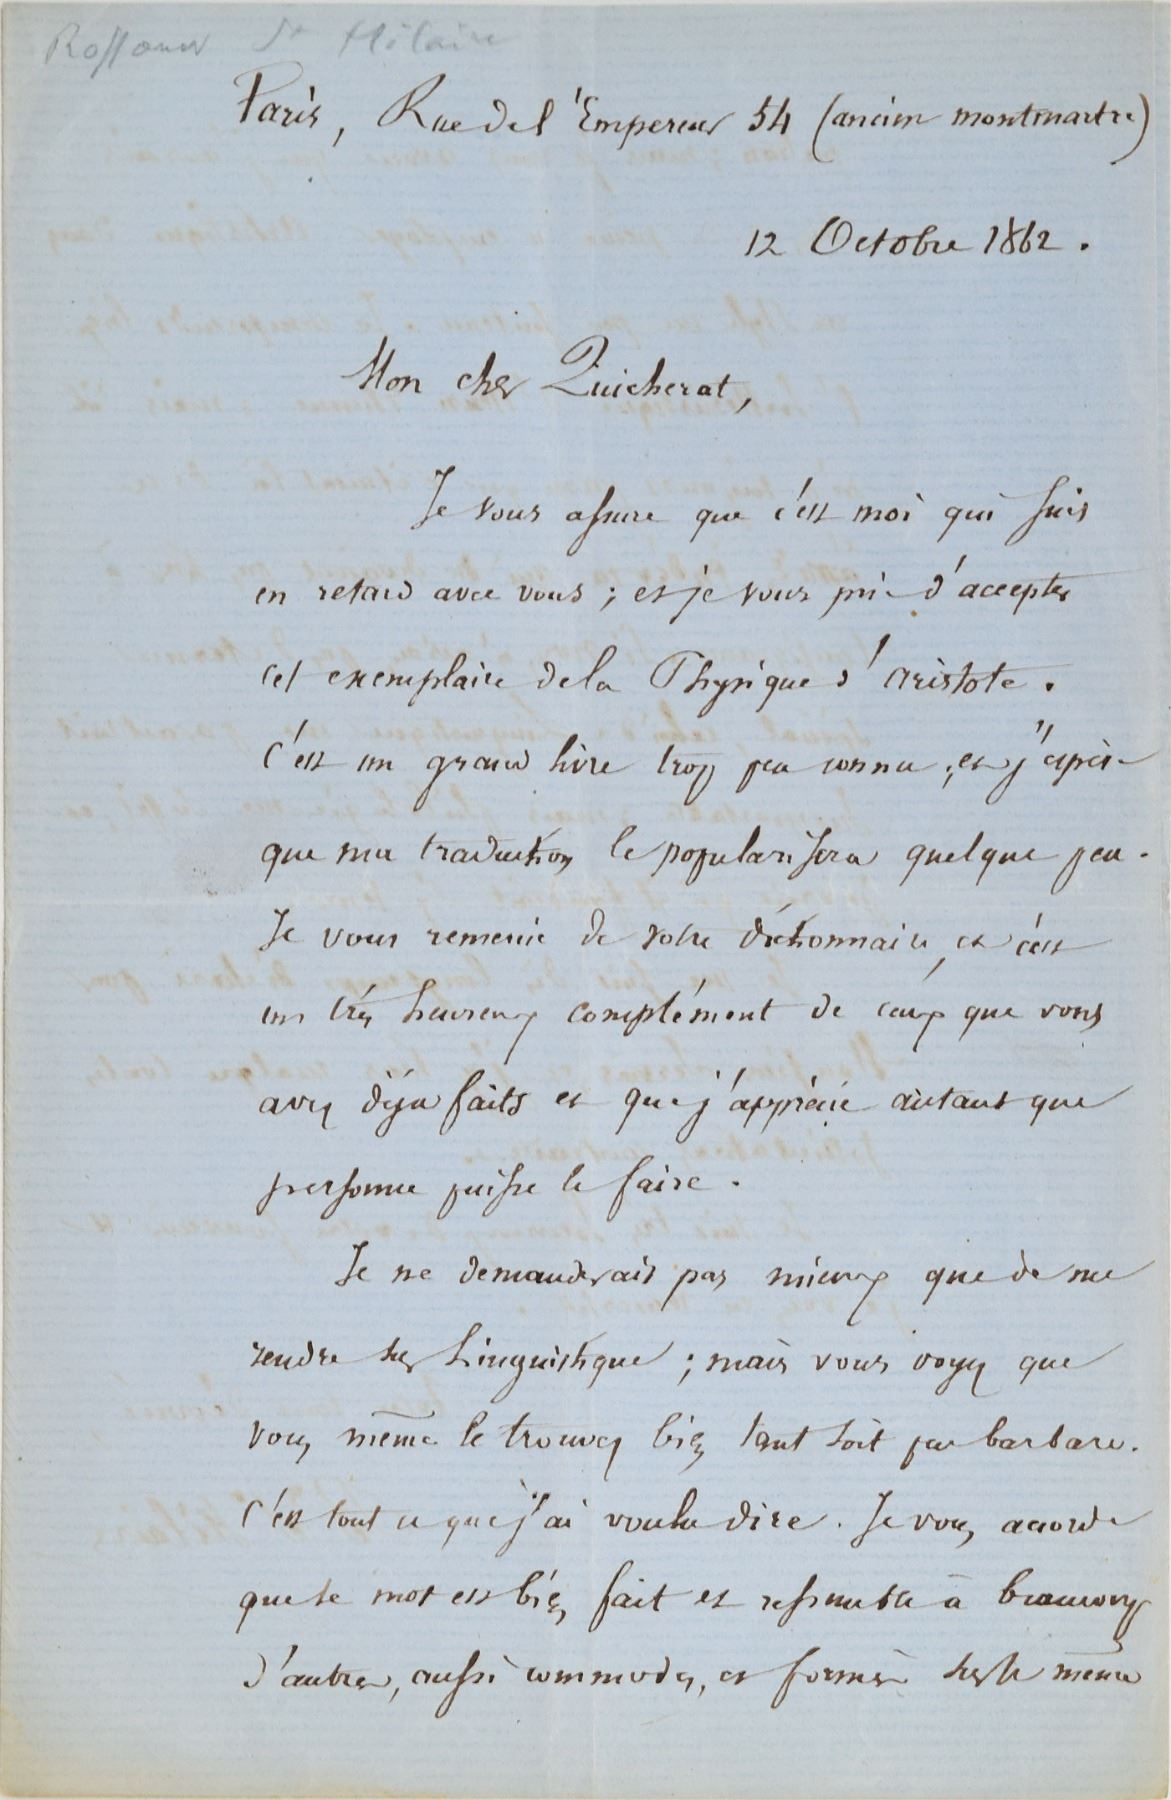 St Hilaire
Paris, Rue de l'Empereur 54 (ancien montmartre)
12 Octobre 1862.
Mon cher Quicherat,
Je vous assure que c'est moi qui suis
en retard avec vous ; et je vous prie d'accepter
cet exemplaire de la Physique d'Aristote.
C'est un grand livre trop peu connu ; et j'espère
que ma traduction le popularisera quelque peu.
Je vous remercie de votre dictionnaire, et c'est
un très heureux complément de ceux que vous
avez déja faits et que j'apprécie autant que
personne puisse le faire.
Je ne demanderais pas mieux que de me
rendre sur Linguistique ; mais vous voyez que
vous même le trouvez bien tant soit peu barbare.
C'est tout ce que j'ai voulu dire. Je vous accorde
que le mot est bien fait et ressemble à beaucoup
d'autres, aussi commodes, et formés sur le même